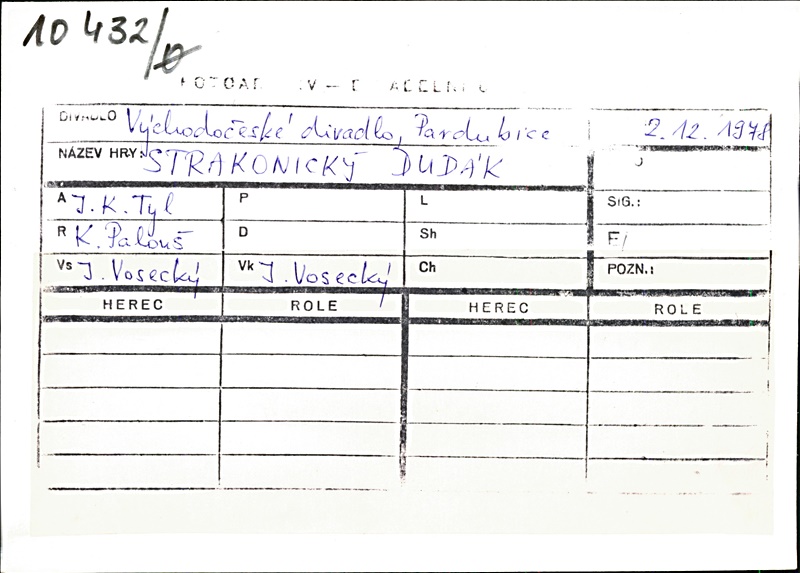 10 432/D
DIVADLO Východočeské divadlo, Pardubice 2.12.1978
NÁZEV HRY: STRAKONICKÝ DUDÁK
A J. K. Tyl P L SIG.:
R K. Palouš D Sh
Vs J. Vosecký Vk J. Vosecký Ch POZN.:
HEREC ROLE HEREC ROLE